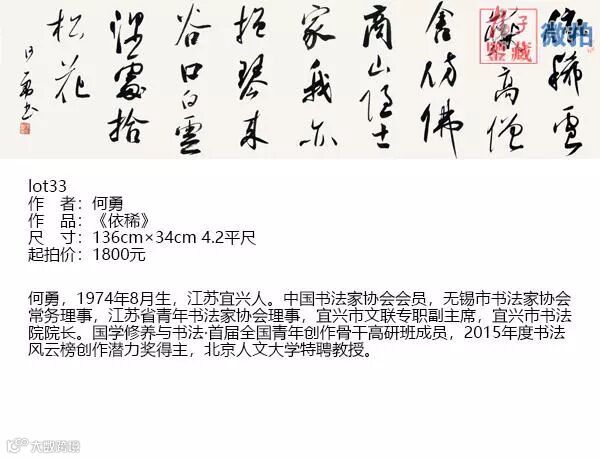 依稀雪
高僧
舍仿佛
商山隐士
家我亦
抱琴来
谷口白雲
深處拾
松花
何勇书
子
鉴藏
微拍
lot33
作 者：何勇
作 品：《依稀》
尺 寸：136cm×34cm 4.2平尺
起拍价：1800元
何勇，1974年8月生，江苏宜兴人。中国书法家协会会员，无锡市书法家协会
常务理事，江苏省青年书法家协会理事，宜兴市文联专职副主席，宜兴市书法
院院长。国学修养与书法·首届全国青年创作骨干高研班成员，2015年度书法
风云榜创作潜力奖得主，北京人文大学特聘教授。
大数跨境